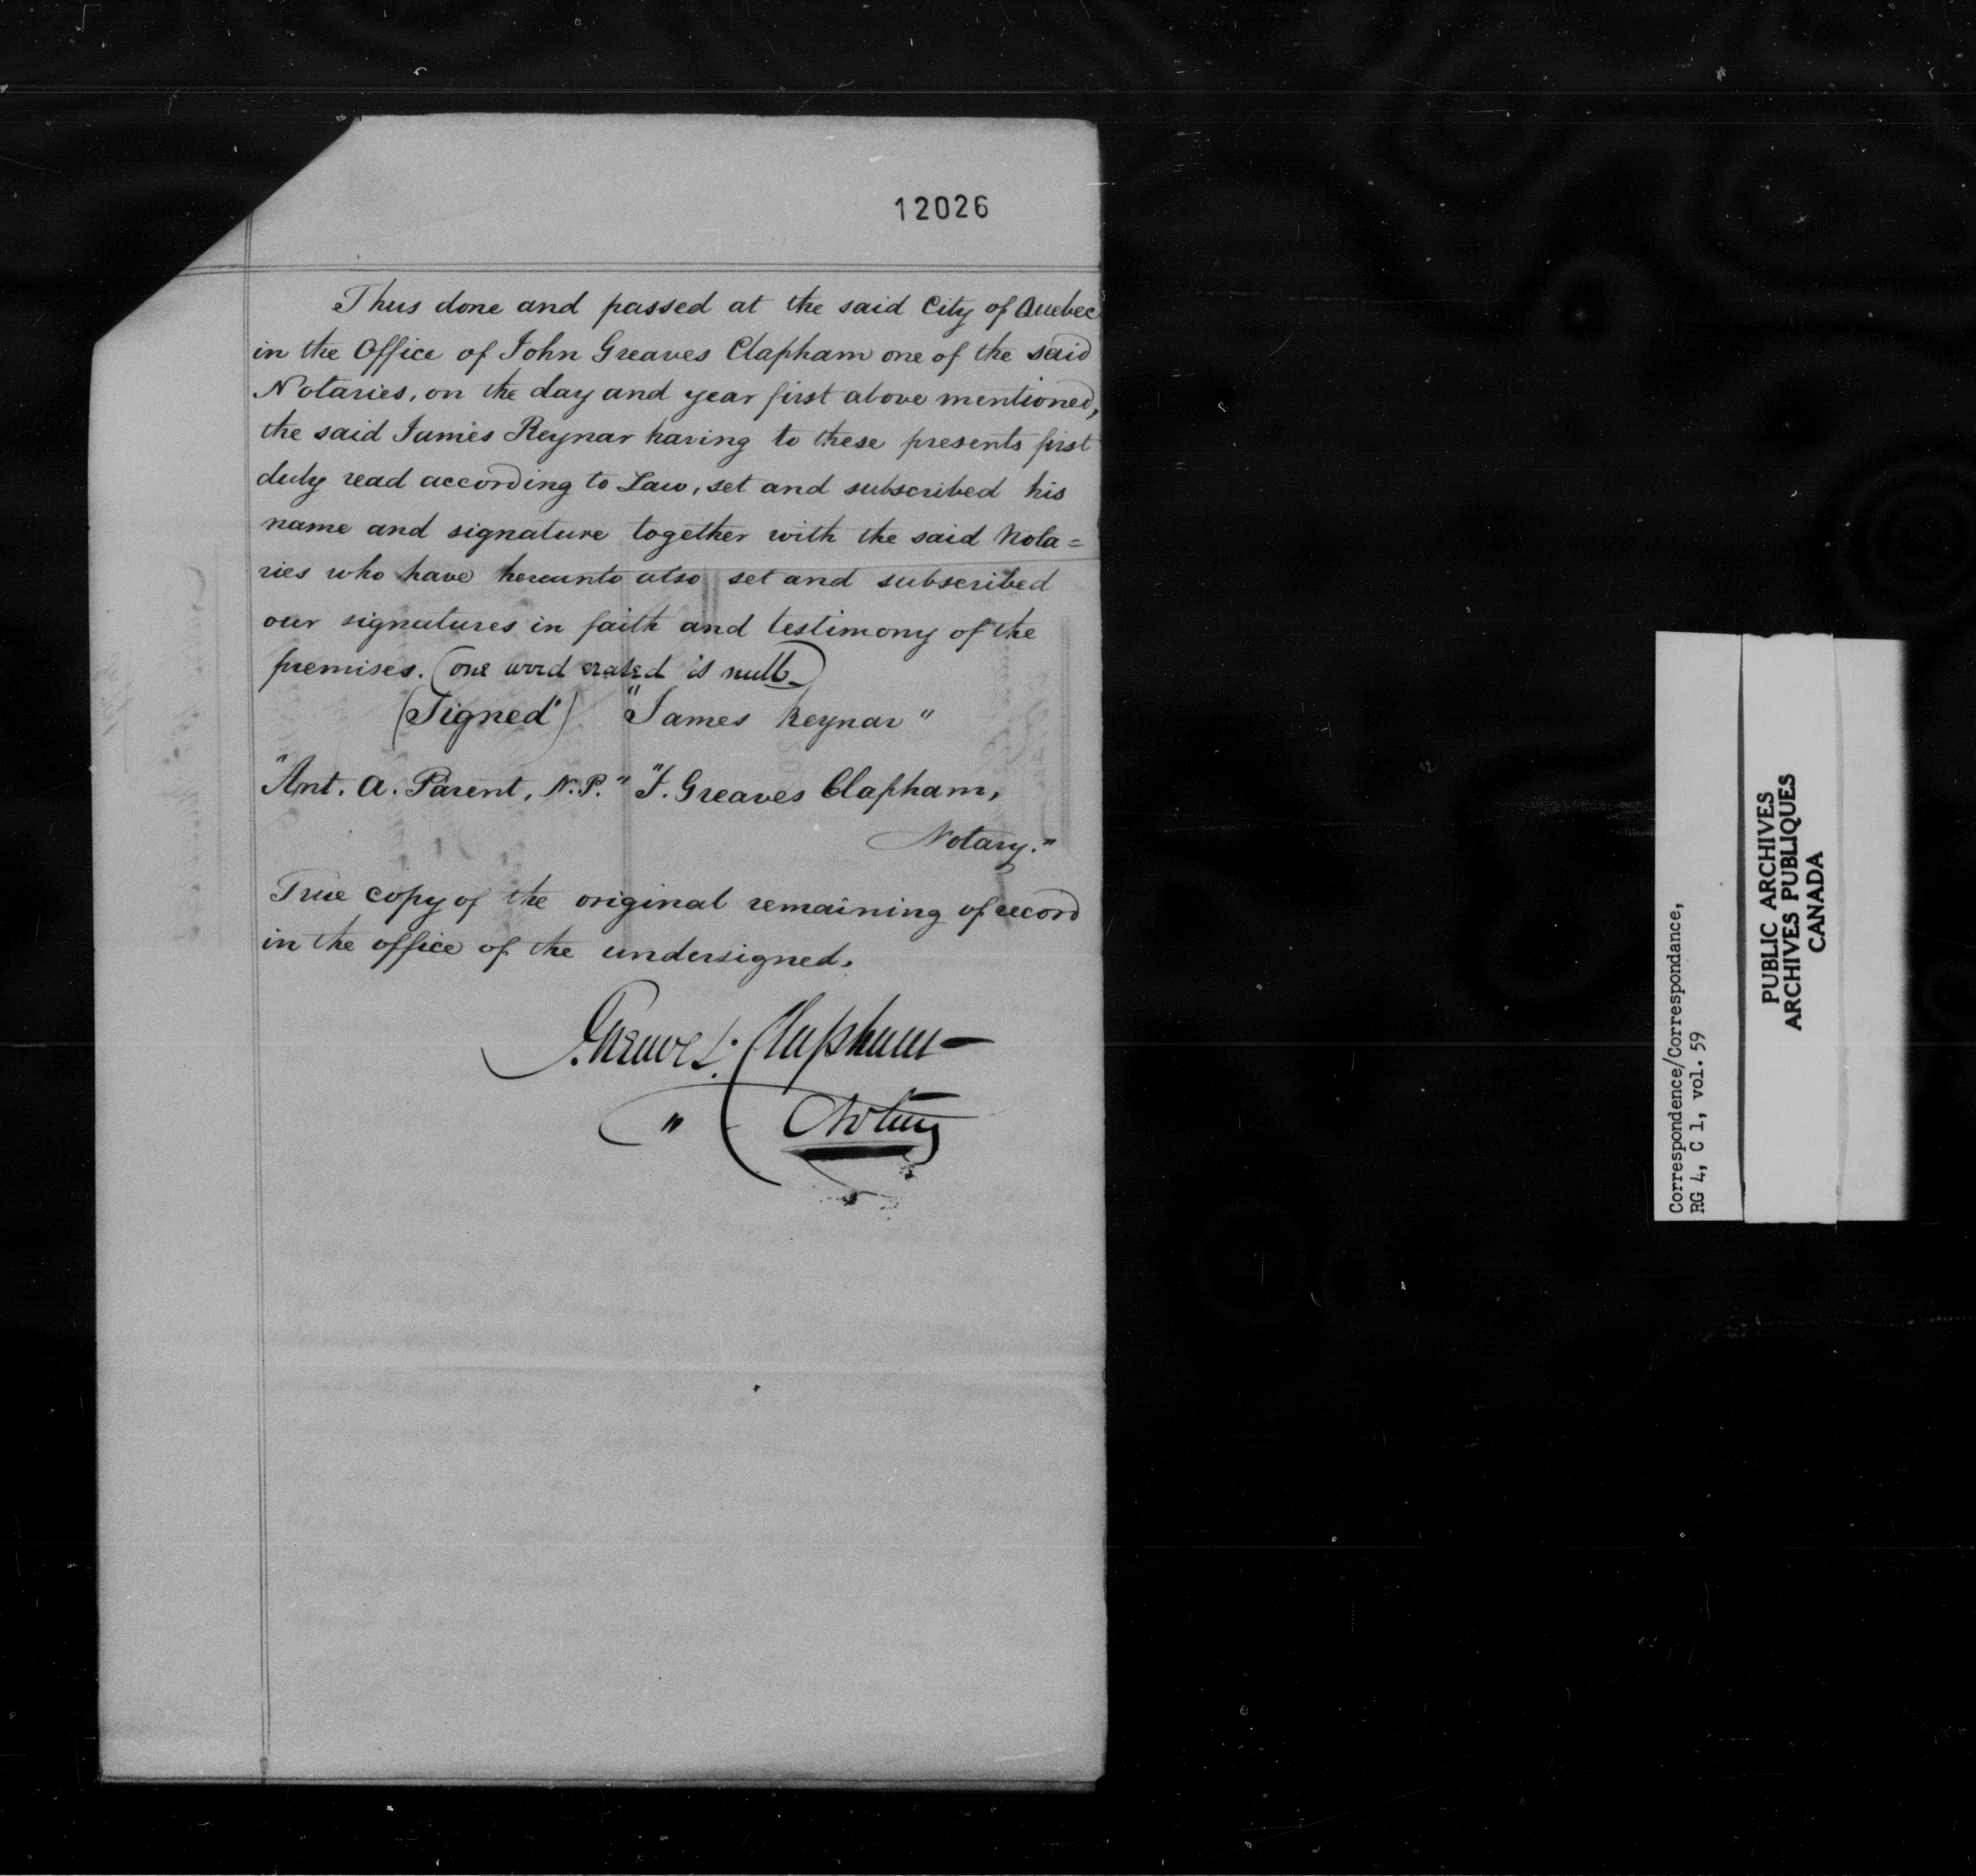 12026
Thus done and passed at the said City of Quebec
in the Office of John Greaves Clapham one of the said
Notaries, on the day and year first above mentioned,
the said James Reynar having to these presents first
duly read according to Law, set and subscribed his
name and signature together with the said Nota=
ries who have hereunto also set and subscribed
our signatures in faith and testimony of the
premises. (one word erased is null)
(Signed) "James Reynar"
"Ant. A. Parent, N.P." "J. Greaves Clapham,
Notary."
True copy of the original remaining of record
in the office of the undersigned.
J. Greaves Clapham
" Notary
Correspondence/Correspondance,
RG 4, C 1, vol. 59
PUBLIC ARCHIVES
ARCHIVES PUBLIQUES
CANADA